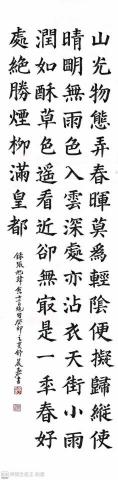 山光物態弄春暉莫為輕陰便擬歸縱使
晴眀無雨色入雲深處亦沾衣天街小雨
潤如酥草色遙看近卻無冣是一秊春好
處絕勝煙柳滿皇都
錄張旭韓愈詩